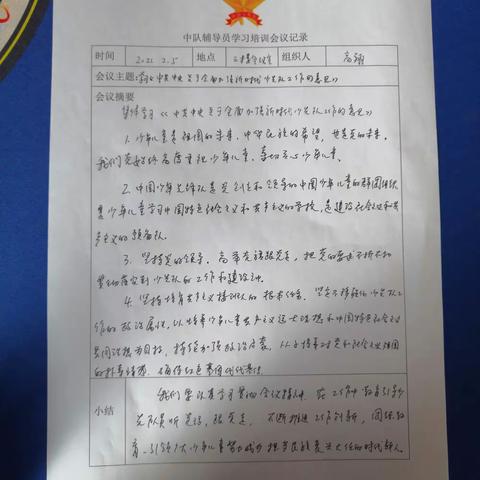 中队辅导员学习培训会议记录
时间 2021.2.5 地点 二楼会议室 组织人 高颖
会议主题:学习《中共中央关于全面加强新时代少先队工作的意见》
会议摘要
集体学习《中共中央关于全面加强新时代少先队工作的意见》
1. 少年儿童是祖国的未来,中华民族的希望,也是党的未来。
我们党始终高度重视少年儿童、亲切关心少年儿童。
2. 中国少年先锋队是党创立和领导的中国少年儿童的群团组织
是少年儿童学习中国特色社会主义和共产主义的学校,是建设社会主义和共
产主义的预备队。
3. 坚持党的领导。高举队旗跟党走,把党的要求
贯彻落实到少先队的工作和建设中。
4. 坚持培育共产主义接班人的根本任务。坚定不移强化少先队工
作的政治属性,以培养少年儿童共产主义远大理想和中国特色社会主义
共同理想为目标,持续加强政治启蒙,从小培养对党和社会主义祖国
的朴素情感,确保红色基因代代传承。
小结
我们要认真学习贯彻会议精神,在工作中教育引导少
先队员听党话,跟党走,不断推进工作创新,团结教
育、引领广大少年儿童努力成为担当民族复兴大任的时代新人。